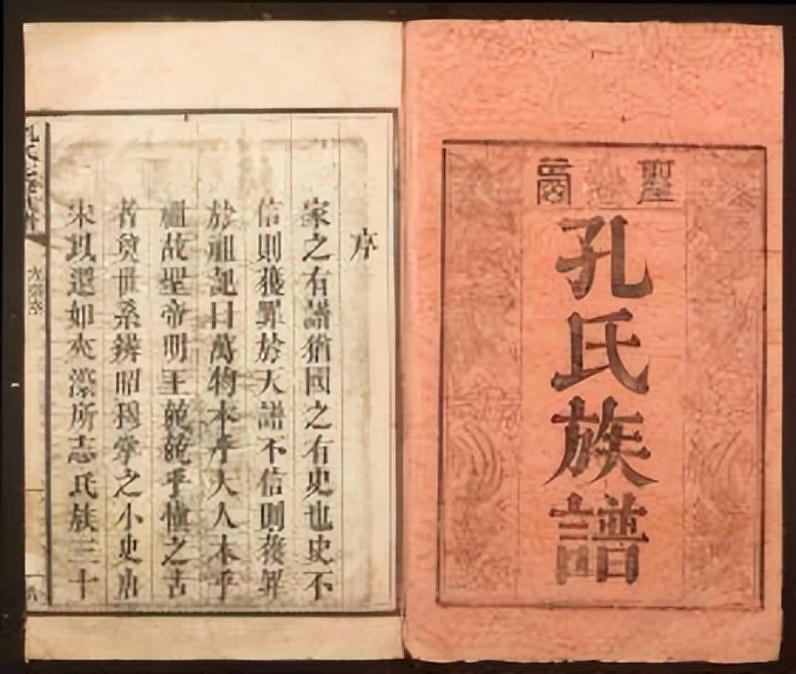 聖
孔氏族譜
序
家之有譜猶國之有史也史不
信則獲罪於天譜不信則獲罪
於祖記曰萬物本乎天人本乎
祖故聖帝明王兢兢乎慎之古
者奠世系辨昭穆掌之小史唐
宋以還如夾漈所志氏族三十